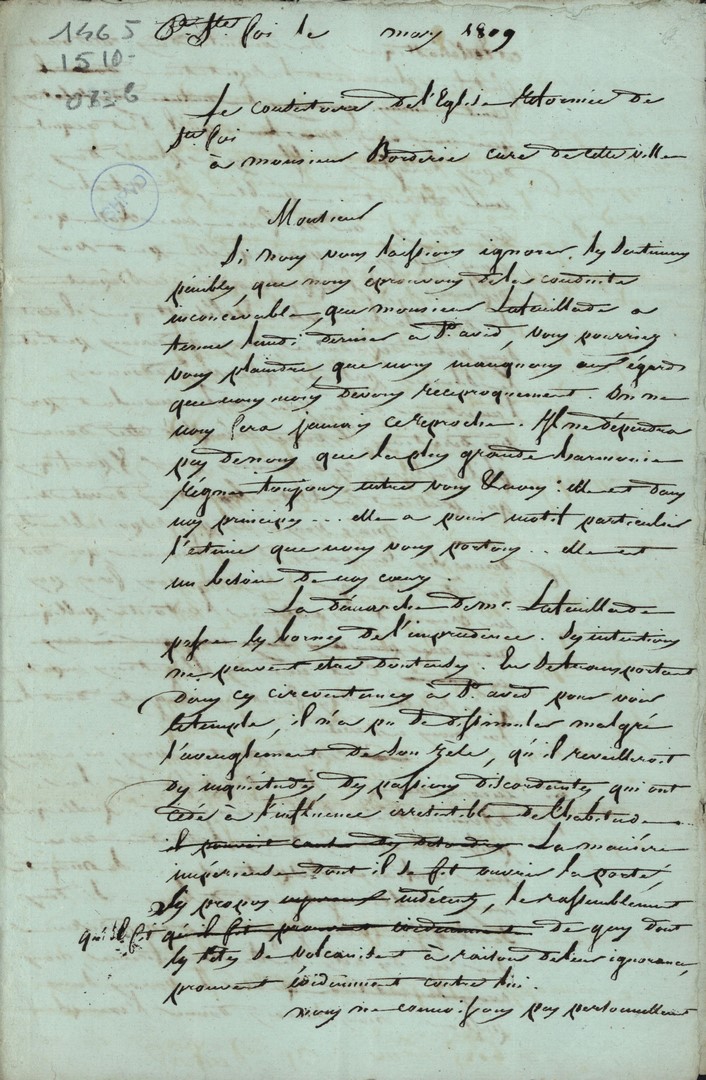 1465
1510-
Ste foi le mars 1809
Le consistoire de l'Eglise Réformée de
Ste foi
à monsieur Borderie curé de cette ville
Monsieur
Si nous vous laissions ignorer les sentimens
pénibles que nous éprouvons de la conduite
inconcevable que monsieur Lataillade a
tenue lundi dernier à St. avid, vous pourriez
vous plaindre que nous manquons aux égards
que nous nous devons réciproquement. On ne
nous fera jamais ce reproche. Il ne dépendra
pas de nous que la plus grande harmonie
règne toujours entre vous & nous : elle est dans
nos principes ... elle a pour motif particulier
l'estime que nous vous portons .. elle est
un besoin de nos cœurs.
La démarche de mr. Lataillade
passe les bornes de l'imprudence. Ses intentions
ne peuvent être douteuses. En se transportant
dans ces circonstances à St. avid pour voir
le temple, il n'a pu se dissimuler malgré
l'aveuglement de son zèle, qu'il reveilleroit
des inquiétudes, des passions discordantes qui ont
cédé à l'influence irresistible de l'habitude
il pouvoit causer des désordres La manière
impérieuse dont il se fit ouvrir la porte,
Les propos indécens, le rassemblement
qu'il fit qu'il fit prouvent évidemment de gens dont
les têtes se volcanisent à raison de leur ignorance,
prouvent évidemment contre lui.
nous ne connoissons pas personnellement